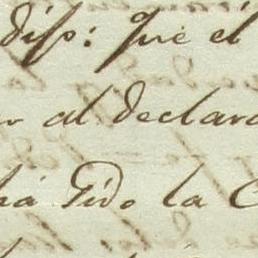 disp: que el
al declara
há sido la C